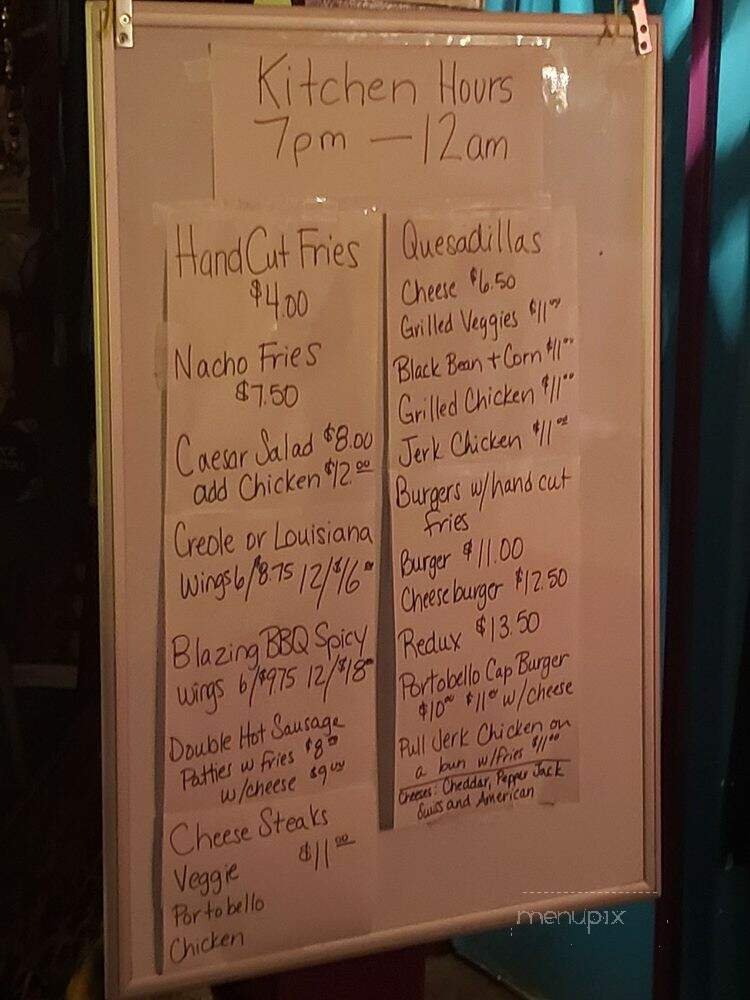 Kitchen Hours
7pm — 12am
Hand Cut Fries
$4.00
Nacho Fries
$7.50
Caesar Salad $8.00
add Chicken $12.00
Creole or Louisiana
Wings 6/$8.75 12/$16.00
Blazing BBQ Spicy
wings 6/$9.75 12/$18.00
Double Hot Sausage
Patties w fries $8.00
w/cheese $9.00
Cheese Steaks
$11.00
Veggie
Portobello
Chicken
Quesadillas
Cheese $6.50
Grilled Veggies $11.00
Black Bean + Corn $11.00
Grilled Chicken $11.00
Jerk Chicken $11.00
Burgers w/hand cut
fries
Burger $11.00
Cheeseburger $12.50
Redux $13.50
Portobello Cap Burger
$10.00 $11.00 w/cheese
Pull Jerk Chicken on
a bun w/fries $11.00
Cheeses: Cheddar, Pepper Jack
Swiss and American
menupix